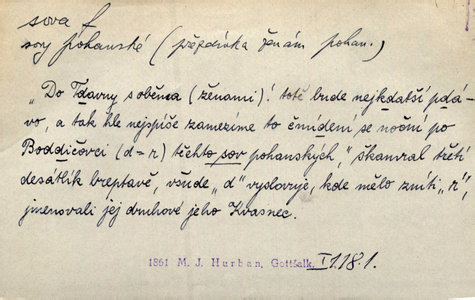 sova f
sovy pohanské (přezdívka ženám pohan.)
„Do Tdavny s oběma (ženami)! totě bude nejkdatší pdá-
vo, a tak hle nejspíše zamezíme to čmídění se noční po
Boddičovci (d=r) těchto sov pohanských," škamral třetí
desátlík breptavě, všude „d" vyslovuje, kde mělo zníti „r",
jmenovali jej druhové jeho Kvasnec.
1861 M. J. Hurban, Gottšalk, I1.18.1.